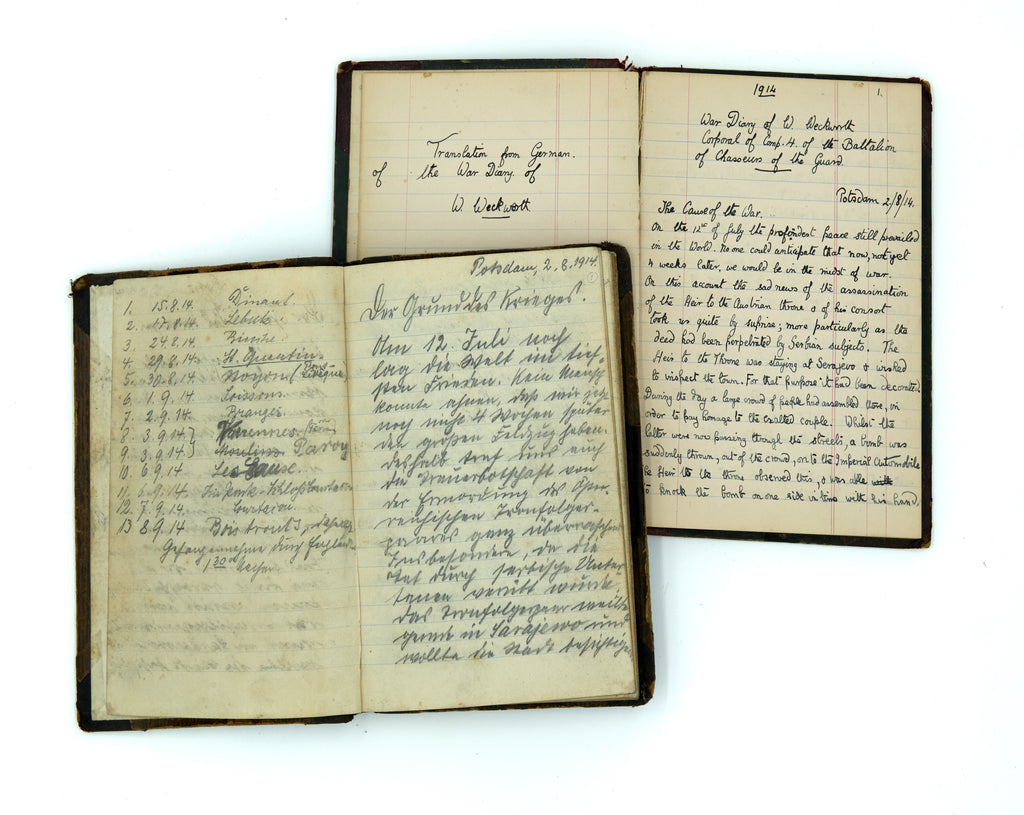 Translation from German.
of the War Diary of
W. Weckworth
1914
1.
War Diary of W. Weckworth
Corporal of Comp. 4. of the Battalion
of Chasseurs of the Guard.
Potsdam 2/8/14.
The Cause of the War.
On the 12th of July the profondest peace still prevailed
in the World. No one could anticipate that now, not yet
4 weeks later, we would be in the midst of war.
On this account the sad news of the assassination
of the Heir to the Austrian throne & of his consort
took us quite by suprise; more particularly as the
deed had been perpetrated by Serbian subjects. The
Heir to the Throne was staying at Serajevo & wished
to inspect the town. For that purpose it had been decorated.
During the day a large crowd of people had assembled there, in
order to pay homage to the exalted couple. Whilst the
latter were now passing though the streets, a bomb was
suddenly thrown, out of the crowd, on to the Imperial Automobile
The Heir to the throne observed this, & was able
to knock the bomb on one side in time with his hand,
1. 15.8.14. Dinant.
2. 17.8.14.
3. 24.8.14.
4. 29.8.14. St. Quentin.
5. 30.8.14. Noyon
6. 1.9.14. Soissons.
7. 2.9.14. Branges.
8. 3.9.14. Varennes.
9. 3.9.14. Moulins. Paroy
10. 6.9.14.
11. 6.9.14.
12. 7.9.14.
13 8.9.14.
Gefangennahme durch
1 30
Potsdam, 2.8.1914.
1
Der Grund des Krieges.
Am 12. Juli noch
lag die Welt im tief-
sten Frieden. Kein Mensch
konnte ahnen, daß wir jetzt
noch nicht 4 Wochen später
den großen Feldzug haben.
Deshalb traf uns auch
die Trauerbotschaft von
der Ermordung des Öster-
reichischen Tronfolger-
paares ganz überraschend
Insbesondere, da die
Tat durch serbische Unter
tanen verübt wurde
Das Tronfolgerpaar weilte
gerade in Sarajewo und
wollte die Stadt besichtigen